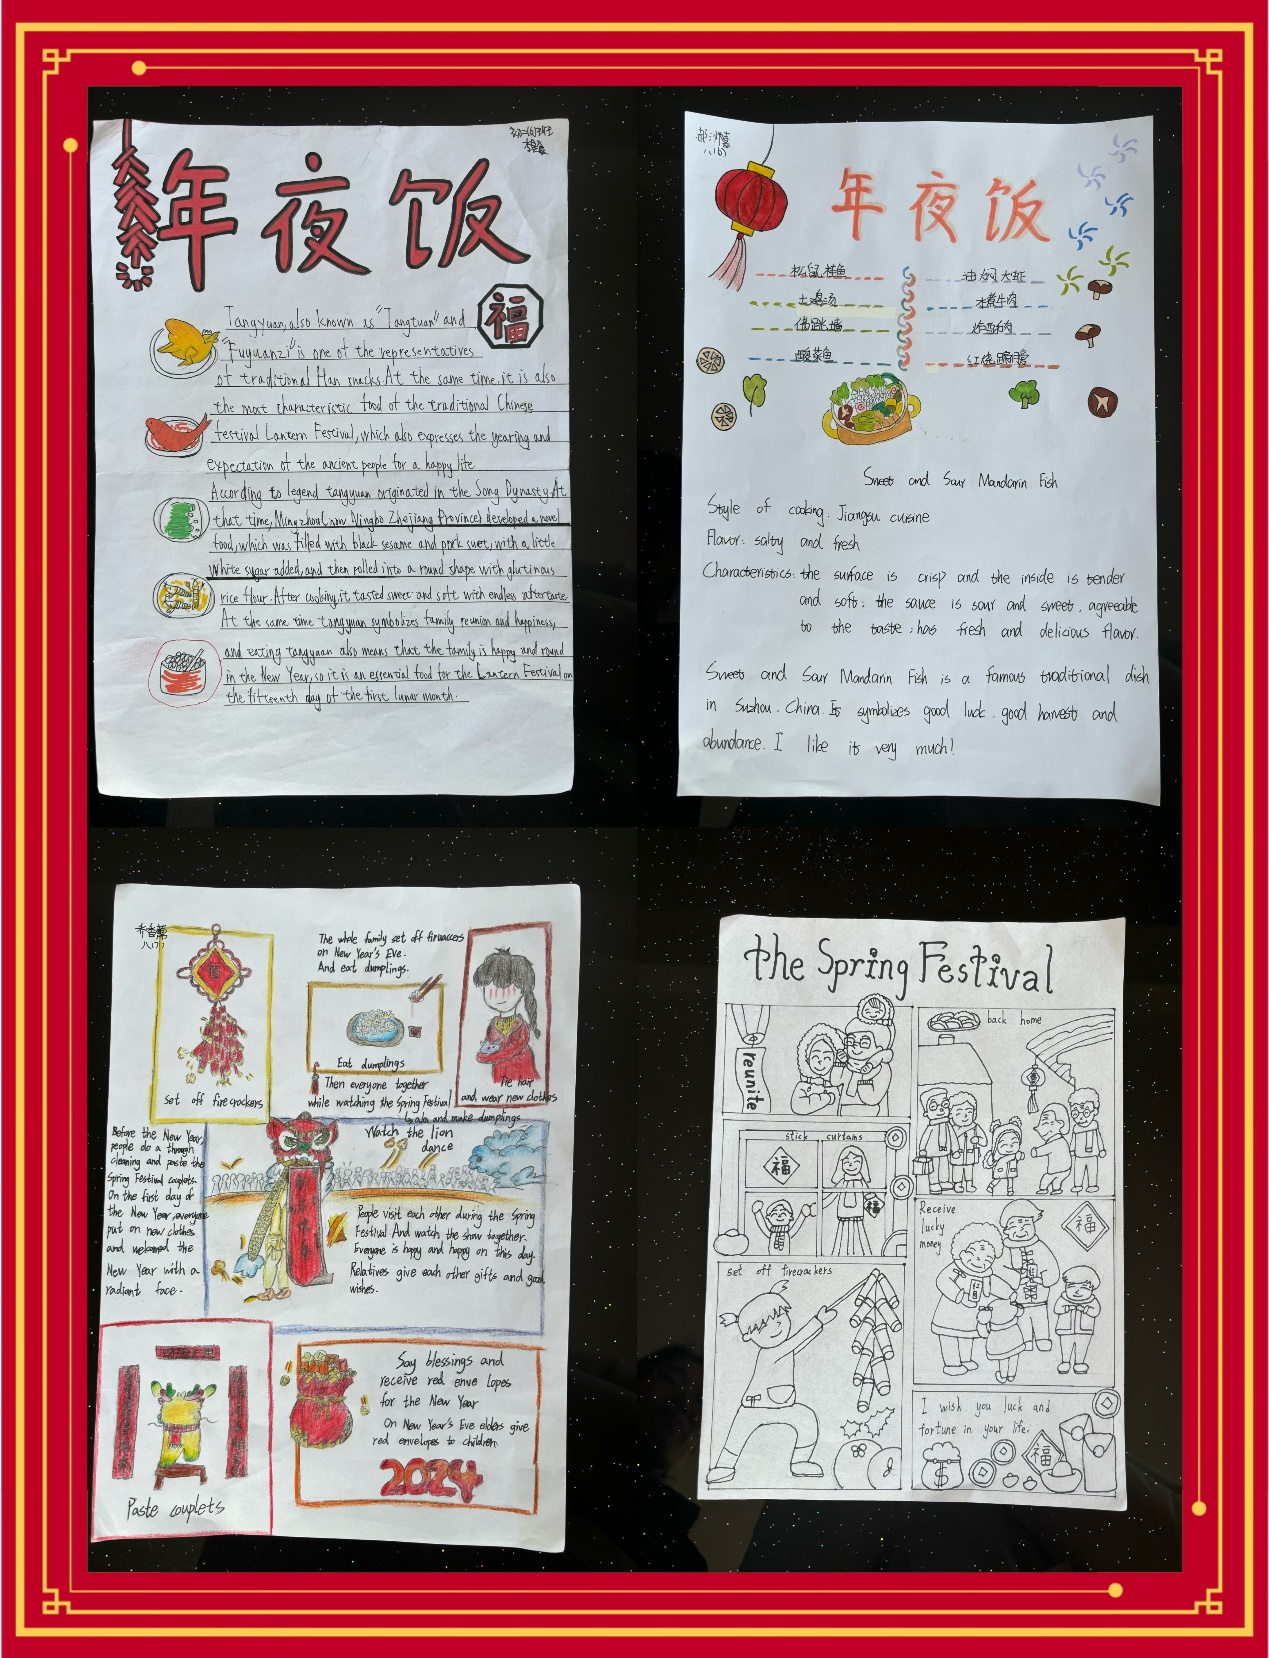 年夜饭
福
Tangyuan, also known as "Tangtuan" and
"Fuyuanzi" is one of the representatives
of traditional Han snacks. At the same time, it is also
the most characteristic food of the traditional Chinese
festival Lantern Festival, which also expresses the yearing and
expectation of the ancient people for a happy life
According to legend tangyuan originated in the Song Dynasty. At
that time, Mingzhou (now Ningbo Zhejiang Province) developed a novel
food, which was filled with black sesame and pork suet, with a little
white sugar added, and then rolled into a round shape with glutinous
rice flour. After cooking, it tasted sweet and soft with endless aftertaste
At the same time tangyuan symbolizes family reunion and happiness,
and eating tangyuan also means that the family is happy and round
in the New Year, so it is an essential food for the Lantern Festival on
the fifteenth day of the first lunar month.
年夜饭
松鼠桂鱼
油焖大虾
土鸡汤
水煮牛肉
佛跳墙
酸菜鱼
红烧蹄膀
Sweet and Sour Mandarin Fish
Style of cooking: Jiangsu cuisine
Flavor: salty and fresh
Characteristics: the surface is crisp and the inside is tender
and soft; the sauce is sour and sweet, agreeable
to the taste; has fresh and delicious flavor.
Sweet and Sour Mandarin Fish is a famous traditional dish
in Suzhou, China. It symbolizes good luck, good harvest and
abundance. I like it very much!
八(7)
set off firecrackers
The whole family set off
on New Year's Eve.
And eat dumplings.
Eat dumplings
Then everyone together
while watching the Spring Festival
Gala and make dumplings
Tie hair
and wear new clothes
Before the New Year,
people do a through
cleaning and paste the
Spring Festival couplets.
On the first day of
the New Year, everyone
put on new clothes
and welcomed the
New Year with a
radiant face.
Watch the lion
dance
People visit each other during the Spring
Festival And watch the show together.
Everyone is happy and happy on this day.
Relatives give each other gifts and good
wishes.
Paste couplets
Say blessings and
receive red enve lopes
for the New Year
On New Year's Eve elders give
red envelopes to children.
2024
the Spring Festival
reunite
back home
stick curtains
福
福
Receive
lucky
money
福
set off firecrackers
I wish you luck and
fortune in your life.
福
$